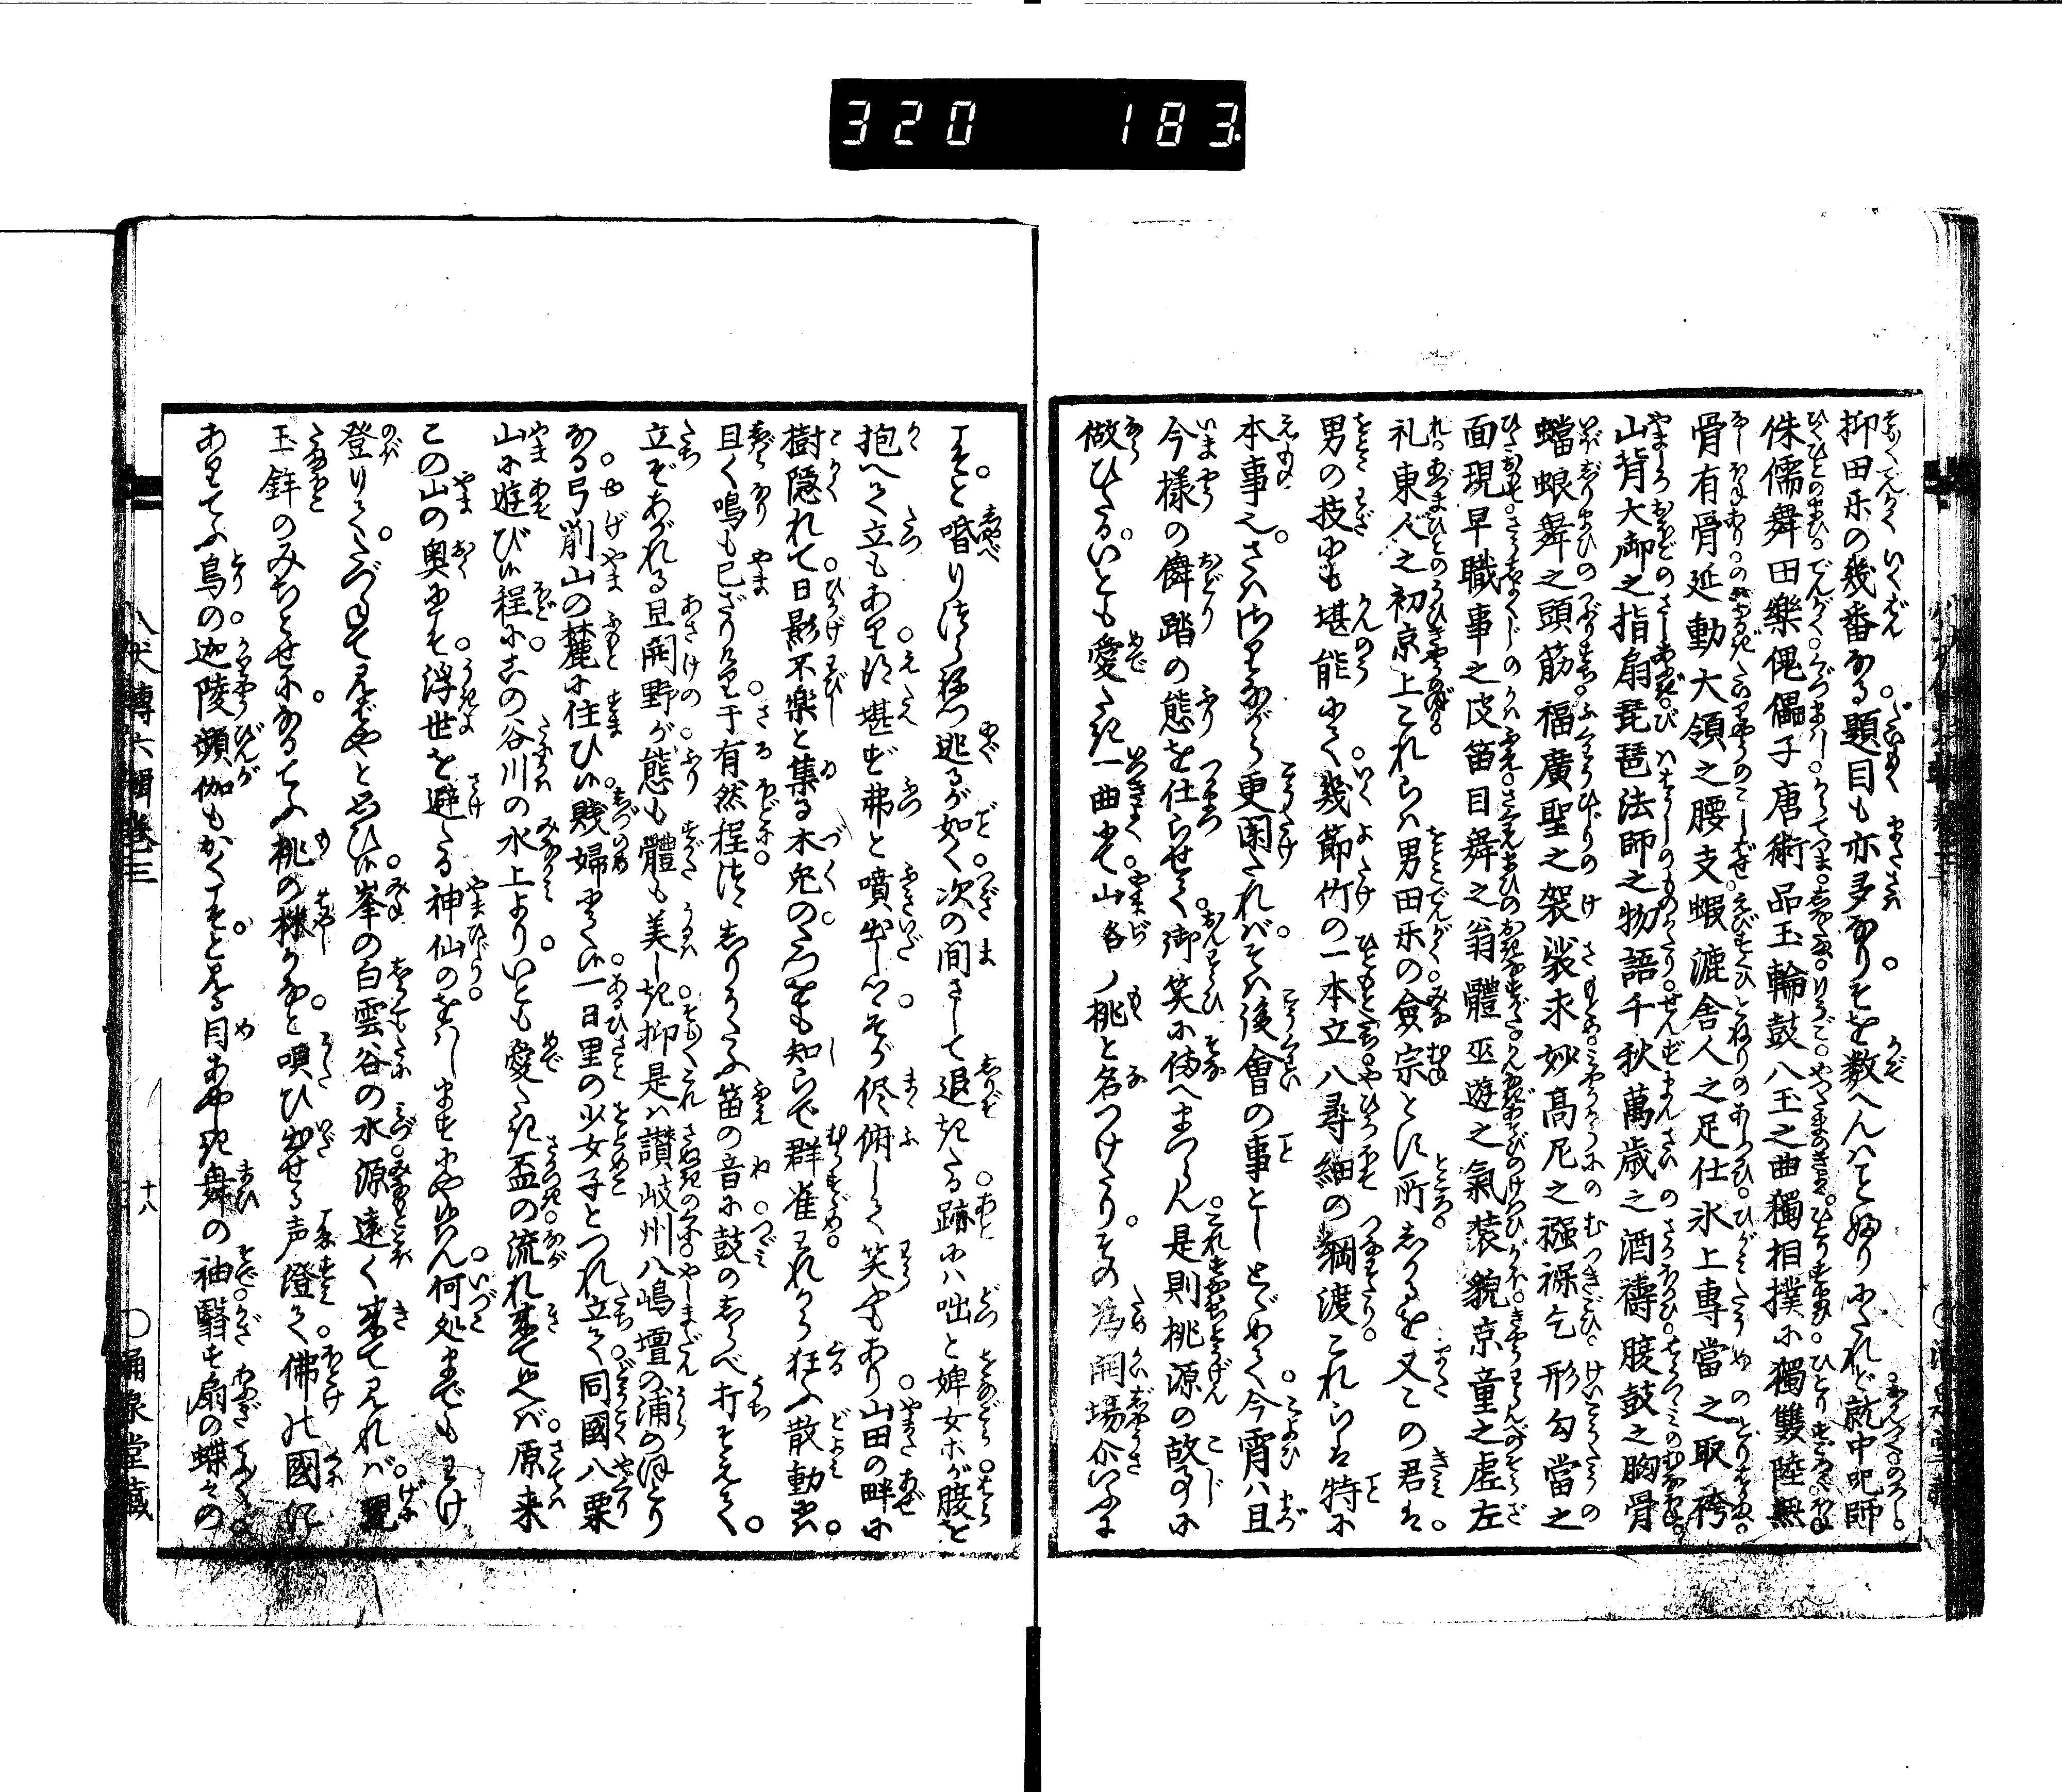 320 183
抑田楽の幾番なる題目も亦多かりそを数へんはことふりにたれど就中呪師
侏儒舞田樂傀儡子唐術品玉輪鼓八玉之曲獨相撲に獨雙陸無
骨有骨延動大領之腰支蝦漉舎人之足仕氷上專當之取袴
山背大御之指扇琵琶法師之物語千秋萬歳之酒禱腹鼓之胸骨
蟷蜋舞之頭筋福廣聖之袈裟求妙高尼之襁褓乞形勾當之
面現早職事之皮笛目舞之翁體巫遊之氣装貌京童之虚左
礼東人之初京上これらは男田楽の僉宗とす所しかるを又この君は
男の技にも堪能にて幾節竹の一本立八尋細の綱渡これらは特に
本事也さはさりながら更闌たればそは後會の事としとゞめて今宵は且
今様の儛踏の態を仕らせて御笑に備へまつらん是則桃源の故事に
做ひたるいとも愛たき一曲にて山路ノ桃と名つけたりその為開場尒いふに
こそと喟りつゝ軈て逃るが如く次の間さして退きたる跡には咄と婢女ホが腹を
抱へて立もあり得堪ず弗と噴出しつゝそが侭俯して笑ふもあり山田の畔に
樹隠れて日影不楽と集る木兎のたつをも知らで群雀それから狂ふ散動さは
且く鳴も已ざりけり于有然程にしりうたふ笛の音に鼓のしらべ打そえて
立ぞあがれる旦開野が態も體も美しき抑是は讃岐州八嶋壇の浦のほとり
なる弓削山の麓に住ひぬ賤婦にて候一日里の少女子とつれ立て同國八栗
山に遊びし程にこの谷川の水上よりいとも愛たき盃の流れ来て候へば原来
この山の奥にこそ浮世を避たる神仙のをはしますにやあらん何処までもわけ
登りてたづねて見ばやと思ひし峯の白雲谷の水源遠く来て見れば現
玉鉾のみちとせになるてふ桃の機かなと唄ひ出せる声澄て佛の國に
ありてふ鳥の迦陵頻伽もかくこそと見る目あやしき舞の袖翳す扇の蝶々の
八犬傳六輯卷三
十八
○涌泉堂藏